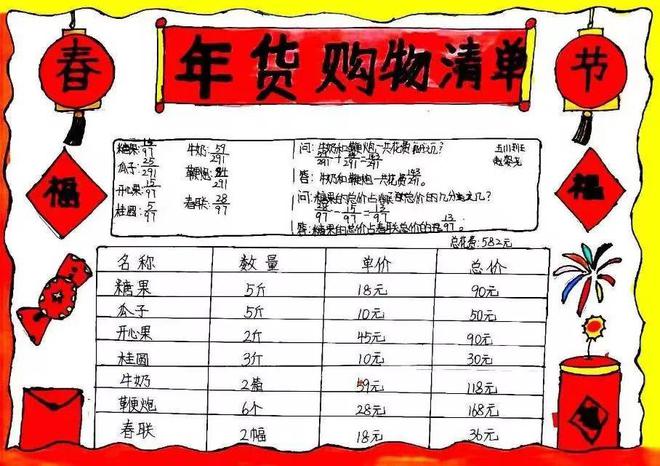 春 年货购物清单 节
糖果:15/97 牛奶:59/291
瓜子:25/291 鞭炮:84/291
开心果:15/97 春联:28/97
桂圆:5/97
问:牛奶和鞭炮一共花费
答:牛奶和鞭炮一共花费
问:糖果的总价占春联总价的几分之几?
28/97-15/97=13/97
答:糖果的总价占春联总价的13/97。
五(1)班
总花费:582元
福 福
名称 数量 单价 总价
糖果 5斤 18元 90元
瓜子 5斤 10元 50元
开心果 2斤 45元 90元
桂圆 3斤 10元 30元
牛奶 2箱 59元 118元
鞭炮 6个 28元 168元
春联 2幅 18元 36元